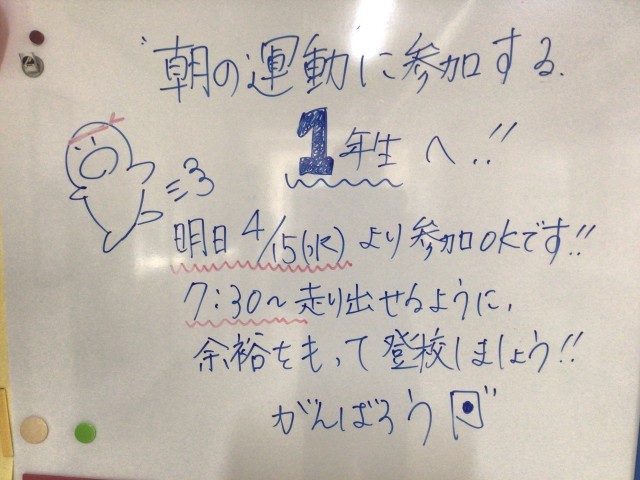 "朝の運動"に参加する
1年生へ!!
明日4/15(水)より参加OKです!!
7:30～走り出せるように、
余裕をもって登校しましょう!!
がんばろう